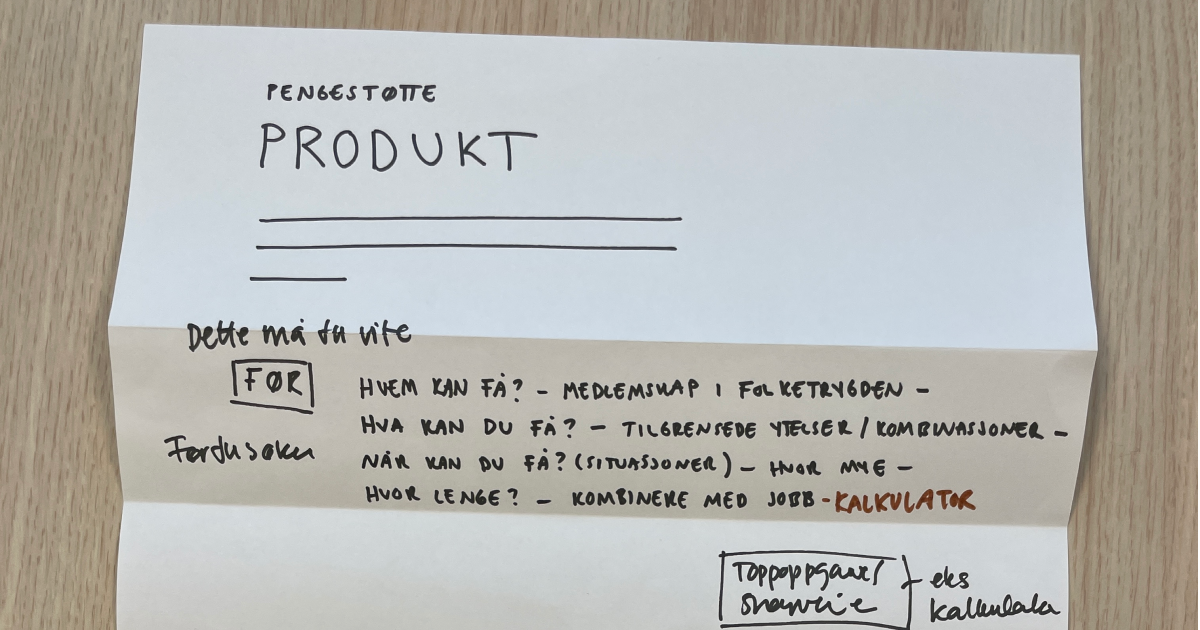 PENGESTØTTE
PRODUKT
Dette må du vite
FØR
Før du søker
HVEM KAN FÅ? – MEDLEMSKAP I FOLKETRYGDEN –
HVA KAN DU FÅ? – TILGRENSEDE YTELSER / KOMBINASJONER –
NÅR KAN DU FÅ? (SITUASJONER) – HVOR MYE –
HVOR LENGE? – KOMBINERE MED JOBB - KALKULATOR
Toppoppgaver/
snarveie
eks
kalkulator